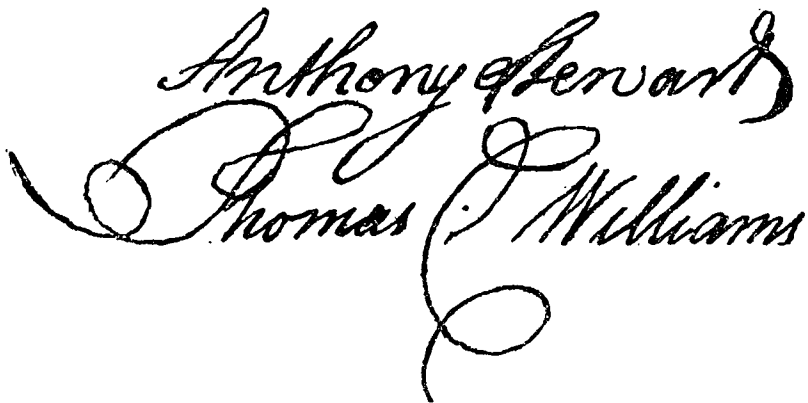 Anthony Stewart
Thomas C Williams